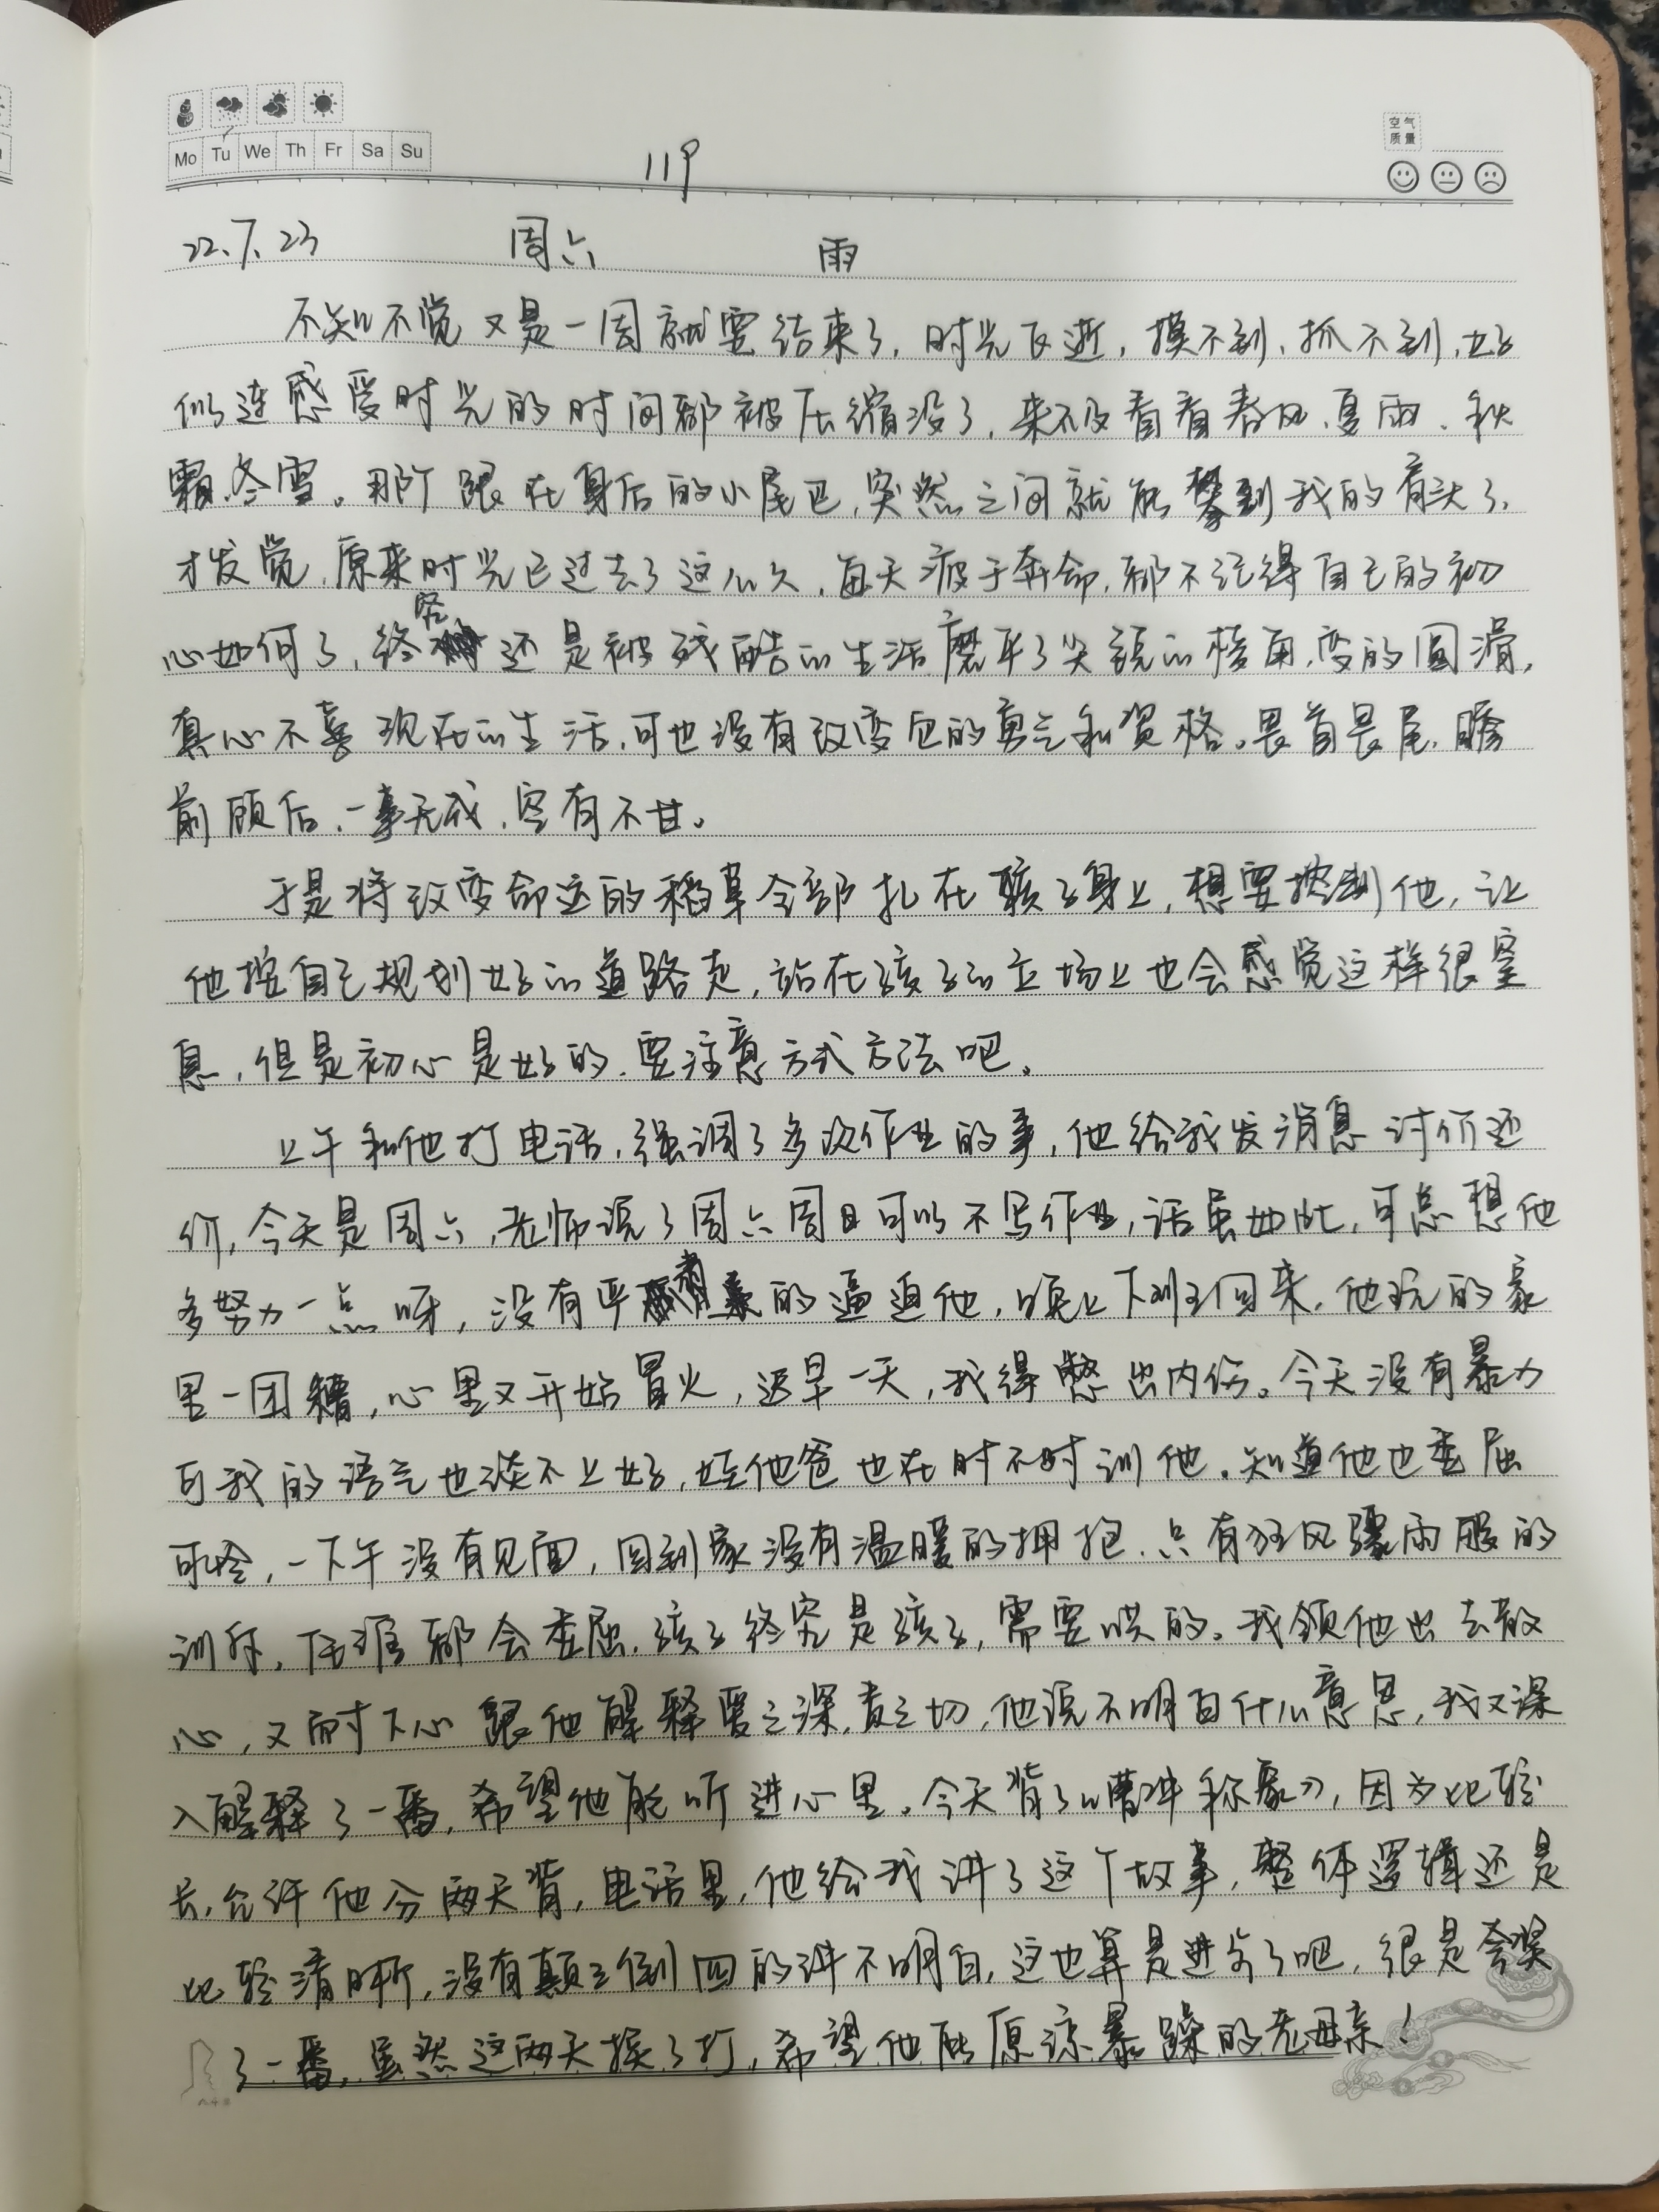 空气
质量
Mo Tu We Th Fr Sa Su
119
22.7.23 周六 雨
不知不觉又是一周就要结束了，时光飞逝，摸不到、抓不到，好
似连感受时光的时间都被压缩没了，来不及看看春风、夏雨、秋
霜、冬雪。那个跟在身后的小尾巴，突然之间就能攀到我的肩头了，
才发觉，原来时光已过去了这么久，每天疲于奔命，都不记得自己的初
心如何了，终究还是被残酷的生活磨平了尖锐的棱角，变的圆滑，
真心不喜现在的生活，可也没有改变它的勇气和资格。畏首畏尾，瞻
前顾后，一事无成，空有不甘。
于是将改变命运的稻草全部扎在孩子身上，想要控制他，让
他按自己规划好的道路走，站在孩子的立场上也会感觉这样很窒
息，但是初心是好的，要注意方式方法吧。
上午和他打电话，强调了多次作业的事，他给我发消息讨价还
价，今天是周六，老师说了周六周日可以不写作业，话虽如此，可总想他
多努力一点呀，没有严肃的逼迫他，晚上下班回来，他玩的家
里一团糟，心里又开始冒火，迟早一天，我得憋出内伤。今天没有暴力
可我的语气也谈不上好，娃他爸也在时不时训他。知道他也委屈
可怜，一下午没有见面，回到家没有温暖的拥抱，只有狂风骤雨般的
训斥，任谁都会委屈，孩子终究是孩子，需要哄的。我领他出去散
心，又耐下心跟他解释爱之深，责之切，他说不明白什么意思，我又深
入解释了一番，希望他能听进心里。今天背了《曹冲称象》，因为比较
长，允许他分两天背，电话里，他给我讲了这个故事，整体逻辑还是
比较清晰，没有颠三倒四的讲不明白，这也算是进步了吧，很是夸奖
了一番，虽然这两天挨了打，希望他能原谅暴躁的老母亲！